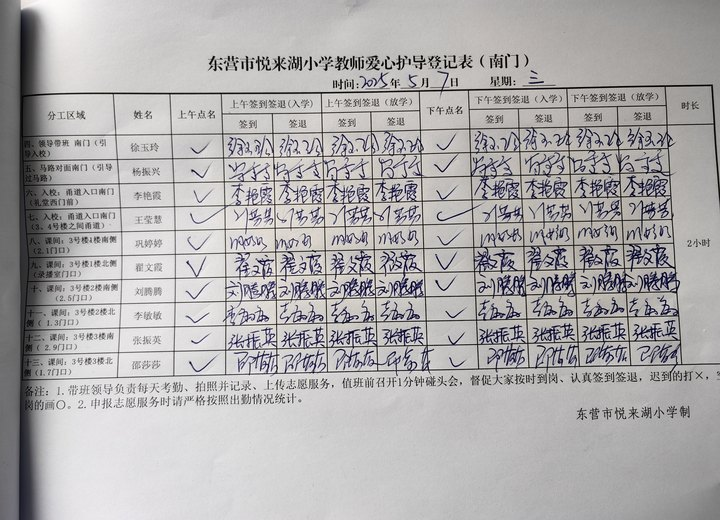 东营市悦来湖小学教师爱心护导登记表（南门）
时间:2025年 5月 7日 星期: 三
分工区域 姓名 上午点名 上午签到签退(入学) 上午签到签退（放学） 下午点名 下午签到签退（入学） 下午签到签退（放学） 时长
签到 签退 签到 签退 签到 签退 签到 签退
四、领导带班 南门（引导入校） 徐玉玲 ✓ 徐玉玲 徐玉玲 徐玉玲 徐玉玲 ✓ 徐玉玲 徐玉玲 徐玉玲 徐玉玲
五、马路对面南门（引导过马路） 杨振兴 ✓ ✓
六、入校：甬道入口南门（礼堂西门前） 李艳霞 ✓ 李艳霞 李艳霞 李艳霞 李艳霞 ✓ 李艳霞 李艳霞 李艳霞 李艳霞
七、入校：甬道入口南门（3、4号楼之间甬道） 王莹慧 ✓ ✓
八、课间：3号楼1楼南侧（2.1门口） 巩婷婷 ✓ ✓ 2小时
九、课间：3号楼1楼北侧（录播室门口） 翟文霞 ✓ 翟文霞 翟文霞 翟文霞 翟文霞 ✓ 翟文霞 翟文霞 翟文霞 翟文霞
十、课间：3号楼2楼南侧（2.5门口） 刘腾腾 ✓ 刘腾腾 刘腾腾 刘腾腾 刘腾腾 ✓ 刘腾腾 刘腾腾 刘腾腾 刘腾腾
十一、课间：3号楼2楼北侧（ 1.3门口） 李敏敏 ✓ 李敏敏 李敏敏 李敏敏 李敏敏 ✓ 李敏敏 李敏敏 李敏敏 李敏敏
十二、课间：3号楼3楼南侧（ 2.9门口） 张振英 ✓ 张振英 张振英 张振英 张振英 ✓ 张振英 张振英 张振英 张振英
十三、课间：3号楼3楼北侧（1.7门口） 邵莎莎 ✓ 邵莎莎 邵莎莎 邵莎莎 邵莎莎 ✓ 邵莎莎 邵莎莎 邵莎莎 邵莎莎
备注：1.带班领导负责每天考勤、拍照并记录、上传志愿服务，值班前召开1分钟碰头会，督促大家按时到岗、认真签到签退，迟到的打×，
岗的画〇。2.申报志愿服务时请严格按照出勤情况统计。
东营市悦来湖小学制